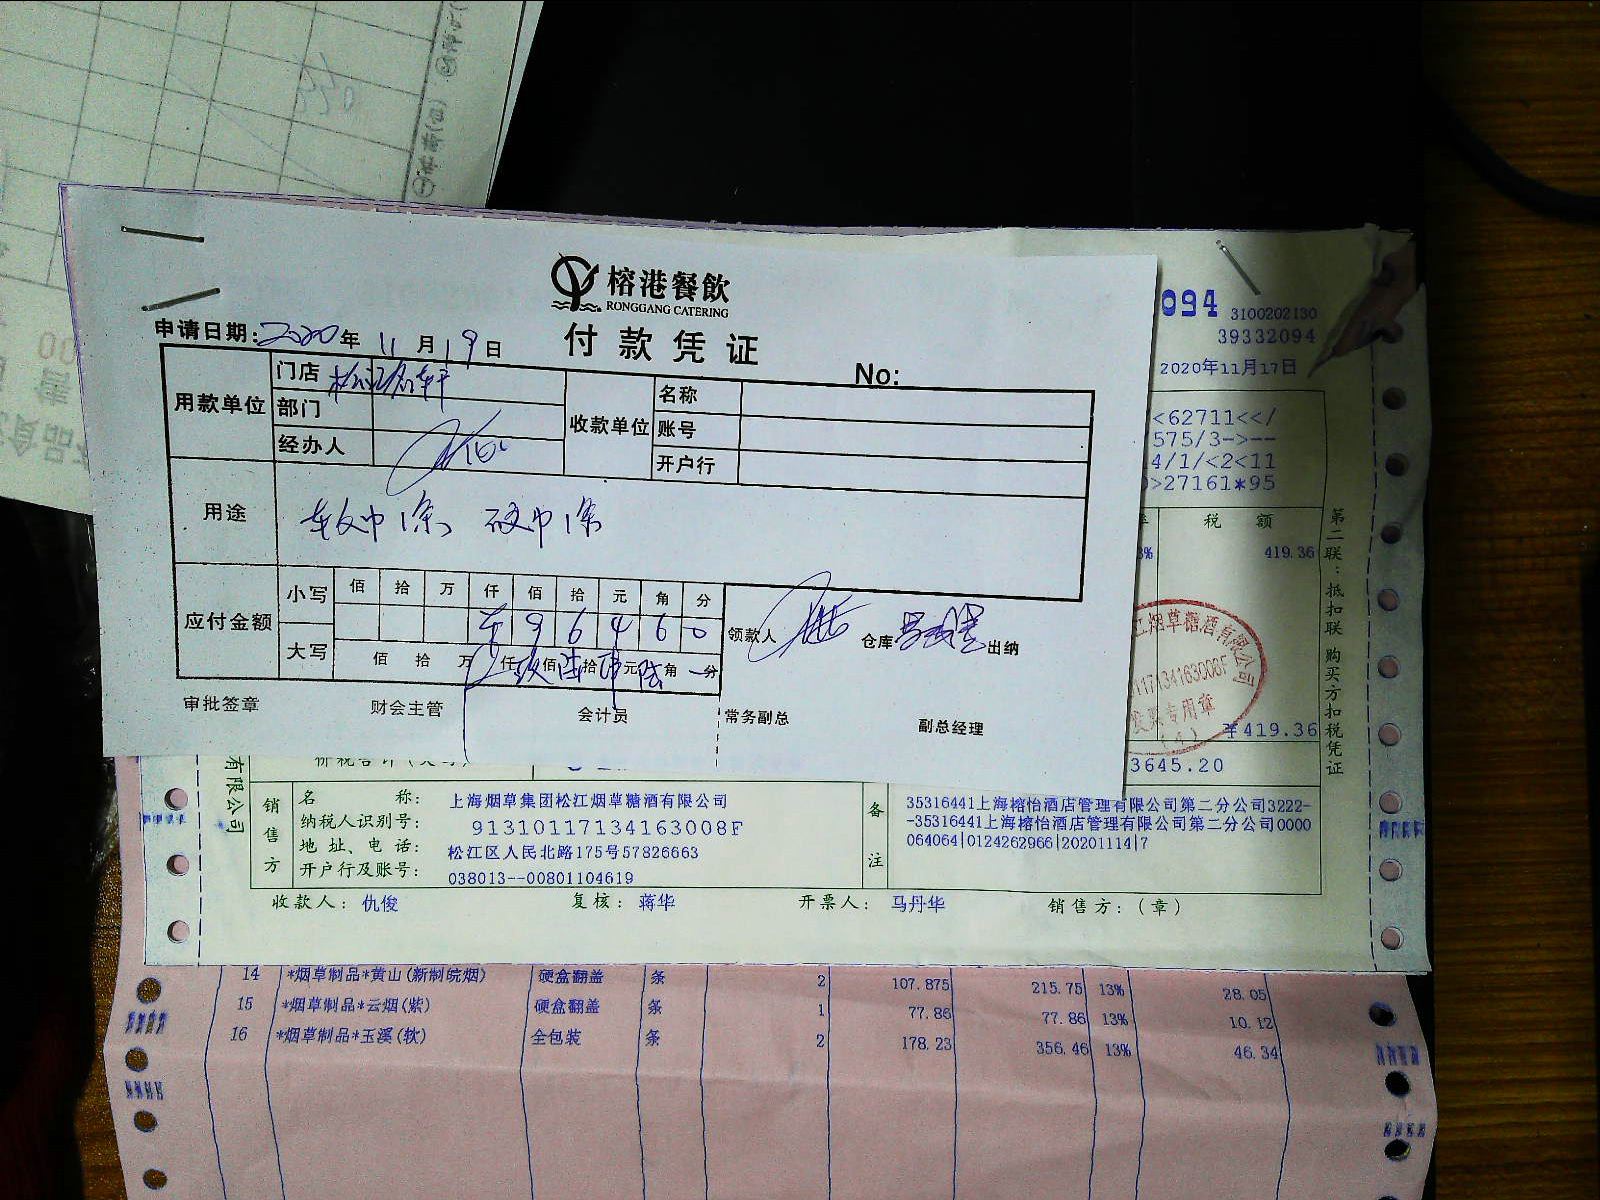 榕港餐飲
RONGGANG CATERING
付款凭证
申请日期:2020年11月19日
No:
用款单位
门店
部门
经办人
收款单位
名称
账号
开户行
用途
软中1条、硬中1条
应付金额
小写
佰 拾 万 仟 佰 拾 元 角 分
9 6 4 6 0
大写
佰 拾 万 仟玖佰陆拾肆元陆角 分
领款人
仓库
出纳
审批签章
财会主管
会计员
常务副总
副总经理
094
3100202130
39332094
2020年11月17日
<62711<</
575/3->--
4/1/<2<11
>27161*95
税 额
3%
419.36
¥419.36
3645.20
第二联:抵扣联 购买方扣税凭证
江烟草糖酒有限公司
发票专用章
有限公司
销售方
名 称: 上海烟草集团松江烟草糖酒有限公司
纳税人识别号: 91310117134163008F
地 址、电 话: 松江区人民北路175号57826663
开户行及账号: 038013--00801104619
备注
35316441上海榕怡酒店管理有限公司第二分公司3222-
-35316441上海榕怡酒店管理有限公司第二分公司0000
064064|0124262966|20201114|7
收款人: 仇俊 复核: 蒋华 开票人: 马丹华 销售方:(章)
14 *烟草制品*黄山(新制皖烟) 硬盒翻盖 条 2 107.875 215.75 13% 28.05
15 *烟草制品*云烟(紫) 硬盒翻盖 条 1 77.86 77.86 13% 10.12
16 *烟草制品*玉溪(软) 全包装 条 2 178.23 356.46 13% 46.34